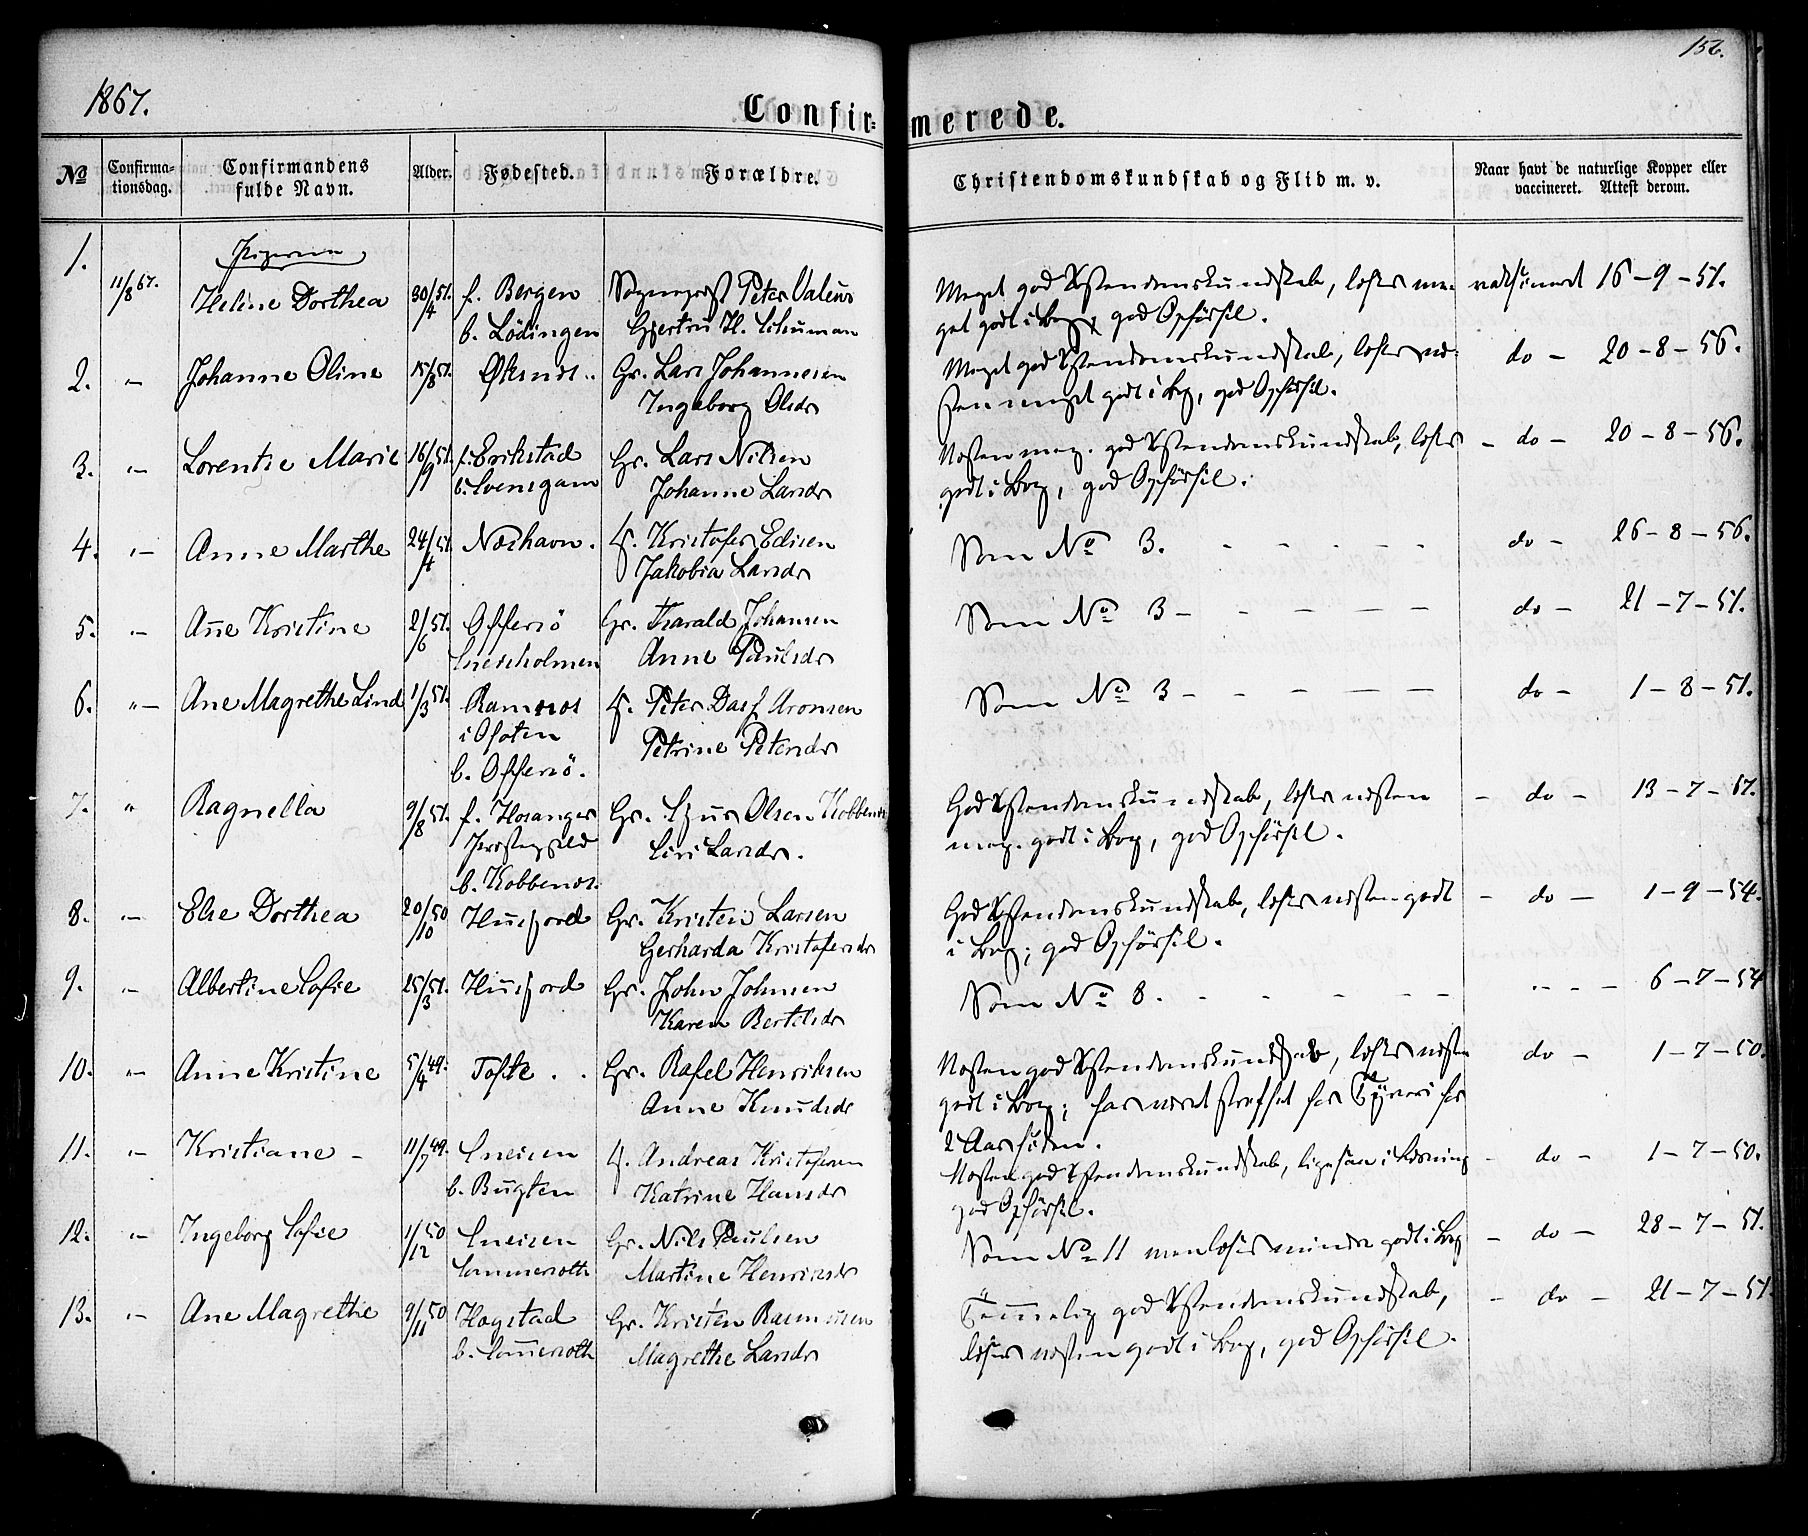 156.
1867.
Confirmerede.
No
Confirmationsdag.
Confirmandens fulde Navn.
Alder.
Fødested.
Forældre.
Christendomskundskab og Flid m. v.
Naar havt de naturlige Kopper eller vaccineret. Attest derom.
Pigerne
1. 11/8 67. Helene Dorthea 30/4 51. f. Bergen Sogneprest Peter Valeur Meget god Xstendomskundskab, læser me- vaksineret 16-9-51.
b. Lödingen Gjertru H. Schuman get godt i Bog, god Opførsel.
2. "- Johanne Oline 15/8 51. Øksnes.. Gr. Lars Johannesen Meget god Xstendomskundskab, læser næ- do - 20-8-56.
Ingeborg Olsdr sten meget godt i Bog, god Opførsel.
3. "- Lorentse Marie 16/9 51. f. Erikstad Gr. Lars Nilsen Næsten meg. god Xstendomskundskab, læser - do - 20-8-56.
b. Svensgam Johanne Larsdr godt i Bog, god Opførsel.
4. "- Anne Marthe 24/4 51. Næshavn. Kristofer Edisen Som No 3. do - 26-8-56.
Jakobia Larsdr
5. "- Ane Kristine 2/6 51. Offersö Gr. Harald Johansen Som No 3 - do - 21-7-51.
Sneisholmen Anne Paulsdr
6. "- Ane Magrethe Lind 1/3 51. Ramnes Peter Dass Aronsen Som No 3 - do - 1-8-51.
i Ofoten Petrine Petersdr
b. Offersö.
7. " Ragnella 9/8 51. f. Hosanger Gr. Olsen Kobbenes God Xstendomskundskab, læser næsten - do - 13-7-57.
Prestegjeld Siri Larsdr. meg. godt i Bog, god Opførsel.
b. Kobbenes.
8. "- Else Dorthea 20/10 50 Husfjord Gr. Kristen Larsen God Xstendomskundskab, læser næsten godt - do - 1-9-54.
Gerharda Kristofersdr i Bog; god Opførsel.
9. "- Albertine Sofie 25/3 51. Husfjord Gr. John Johnsen Som No 8. "- - 6-7-54
Karen Bertelsdr
10. "- Anne Kristine 5/4 49. Tofte . . Gr. Rafel Henriksen Næsten god Xstendomskundskab, læser næsten do - 1-7-50.
Anne Knudsdr godt i Bog; har været straffet for Tyveri for
2 Aar siden.
11. "- Kristiane - 11/7 49. Sneisen Andreas Kristofersen Næsten god Xstendomskundskab, ligesaa i Læsning - do - 1-7-50.
b. Bugten Katrine Hansdr god Opførsel.
12. "- Ingeborg Sofie 1/12 50 Sneisen Gr. Nils Paulsen Som No 11 men læser mindre godt i Bog - do - 28-7-51.
Sommersæth Martine Henriksdr
13. "- Ane Magrethe 9/11 50 Hogstad Gr. Kristen Rasmusen Temmelig god Xstendomskundskab, - do - 21-7-51
b. Somersæth Magrethe Larsdr læser næsten godt i Bog, god Opførsel.